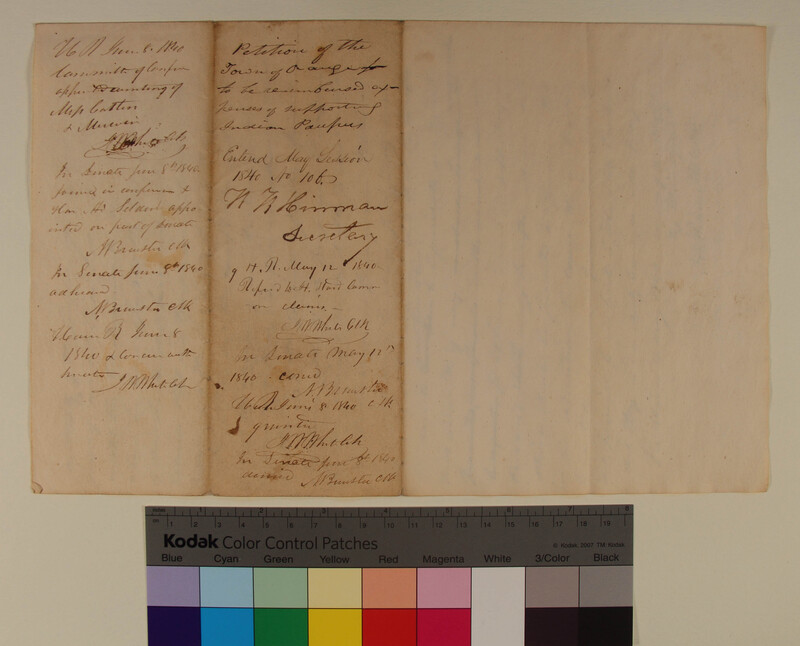 H R June 8. 1840
Committee of Confer
appd consisting of
Mess Catlin
& Merwin
Clk
In Senate June 8th 1840
joined in conference &
Hon Mr Selden appo
inted on part of Senate
N Brewster Clk
In Senate June 8th 1840
adhered
N. Brewster Clk
House R June 8
1840 & Concur with
Senate
J W White Clk
Petition of the
Town of Orange for
to be reimbursed ex-
penses of supporting
Indian Paupers
Enterd May Session
1840 No 106
R R Hinman
Secretary
9 H. R. May 12 1840
Referd to St. Stand Com
on claims
J W White Clk
In Senate May 12th
1840 - concd
N. Brewster
H R June 8 1840 Clk
granted
J W White Clk
In Senate June 8th 1840
denied N Brewster Clk
Kodak Color Control Patches
© Kodak, 2007 TM: Kodak
Blue Cyan Green Yellow Red Magenta White 3/Color Black